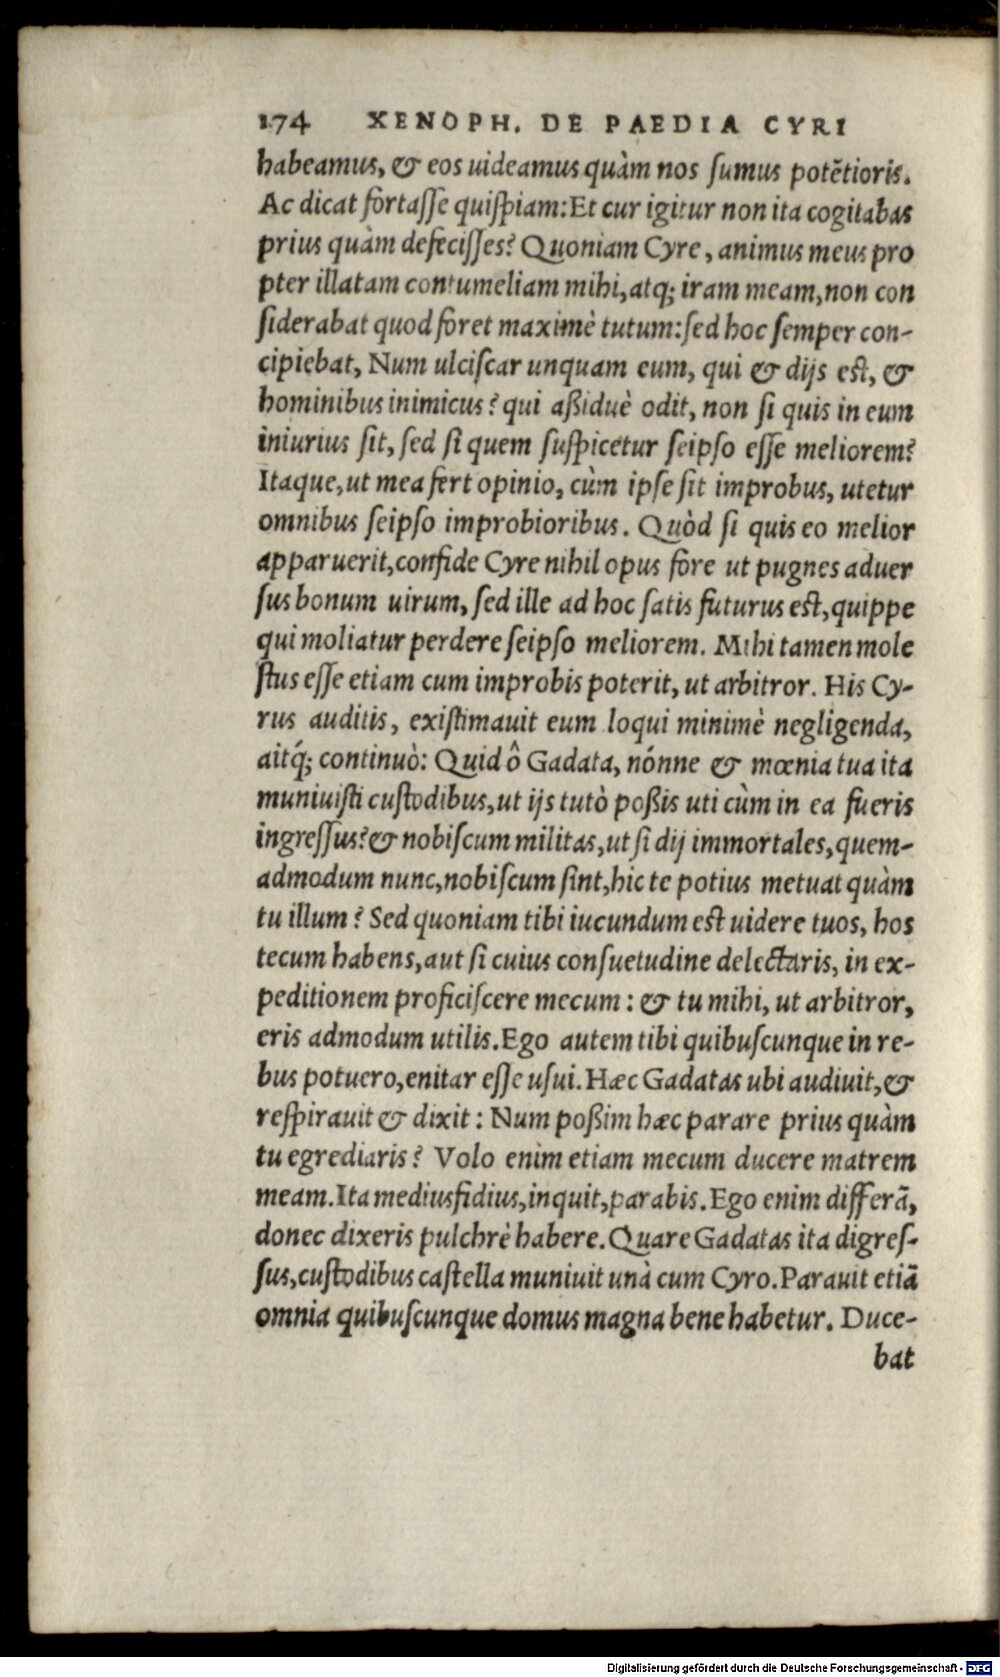 174 XENOPH. DE PAEDIA CYRI
habeamus, & eos uideamus quàm nos ſumus potẽtioris.
Ac dicat fortaſſe quiſpiam: Et cur igitur non ita cogitabas
prius quàm defeciſſes? Quoniam Cyre, animus meus pro
pter illatam contumeliam mihi, atq; iram meam, non con
ſiderabat quod foret maximè tutum: ſed hoc ſemper con-
cipiebat, Num ulciſcar unquam eum, qui & dijs eſt, &
hominibus inimicus? qui aßiduè odit, non ſi quis in eum
iniurius ſit, ſed ſi quem ſuſpicetur ſeipſo eſſe meliorem?
Itaque, ut mea fert opinio, cùm ipſe ſit improbus, utetur
omnibus ſeipſo improbioribus. Quòd ſi quis eo melior
apparuerit, confide Cyre nihil opus fore ut pugnes aduer
ſus bonum uirum, ſed ille ad hoc ſatis futurus eſt, quippe
qui moliatur perdere ſeipſo meliorem. Mihi tamen mole
ſtus eſſe etiam cum improbis poterit, ut arbitror. His Cy-
rus auditis, exiſtimauit eum loqui minimè negligenda,
aitq́; continuò: Quid ô Gadata, nónne & mœnia tua ita
muniuiſti cuſtodibus, ut ijs tutò poßis uti cùm in ea fueris
ingreſſus? & nobiſcum militas, ut ſi dij immortales, quem-
admodum nunc, nobiſcum ſint, hic te potius metuat quàm
tu illum? Sed quoniam tibi iucundum eſt uidere tuos, hos
tecum habens, aut ſi cuius conſuetudine delectaris, in ex-
peditionem proficiſcere mecum: & tu mihi, ut arbitror,
eris admodum utilis. Ego autem tibi quibuſcunque in re-
bus potuero, enitar eſſe uſui. Hæc Gadatas ubi audiuit, &
reſpirauit & dixit: Num poßim hæc parare prius quàm
tu egrediaris? Volo enim etiam mecum ducere matrem
meam. Ita mediusfidius, inquit, parabis. Ego enim differã,
donec dixeris pulchrè habere. Quare Gadatas ita digreſ-
ſus, cuſtodibus caſtella muniuit unà cum Cyro. Parauit etiã
omnia quibuſcunque domus magna bene habetur. Duce-
bat
Digitalisierung gefördert durch die Deutsche Forschungsgemeinschaft - DFG